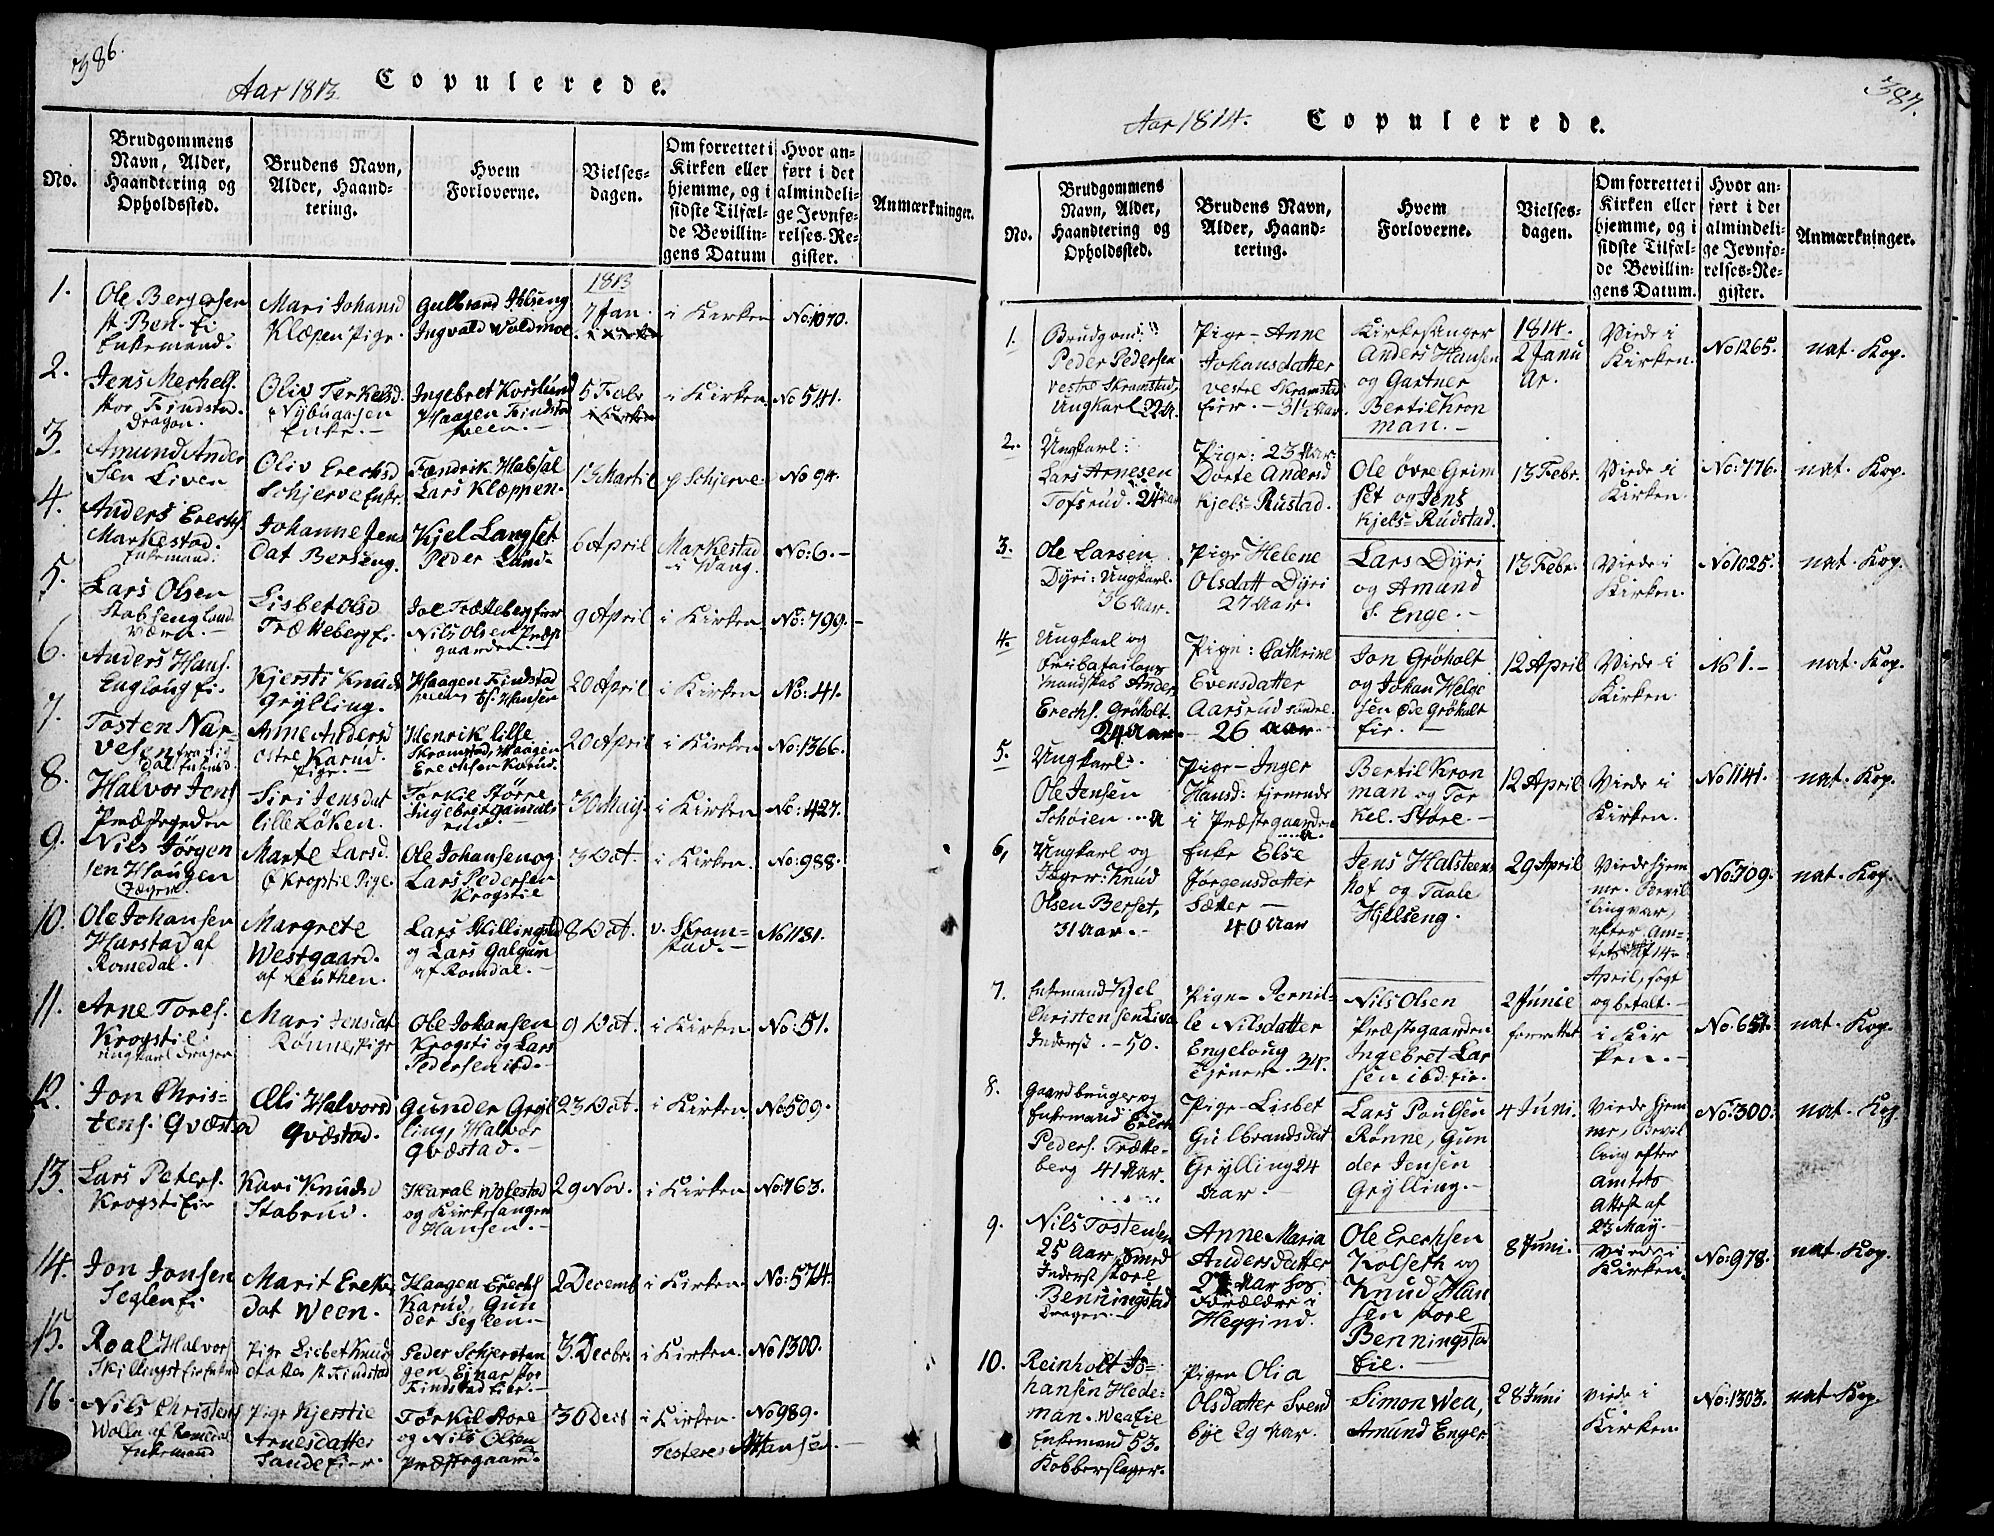 386.
Aar 1813. Copulerede.
No.
Brudgommens
Navn, Alder,
Haandtering og
Opholdssted.
Brudens Navn,
Alder, Haand-
tering.
Hvem
Forloverne.
Vielses-
dagen.
Om forrettet i
Kirken eller
hjemme, og i
sidste Tilfæl-
de Bevillin-
gens Datum
Hvor an-
ført i det
almindeli-
ge Jevnfø-
relses-Re-
gister.
Anmærkninger.
1.
Ole Bergersen
st. Ben. Ei
Enkemand.
Mari Johansd
Klæpen Pige.
Gulbrand
Ingvald Voldmoe
1813
7 Jan.
i Kirken
No: 1070.
2.
Jens Mechels.
stor Findstad.
Dragon.
Oliv Terkelsd.
Nybugaasen
Enke.
Ingebret Korslund
Haagen Findstad
5 Febr
i Kirken
No 541.
3.
Amund Ander
sen Liven
Oliv Erechsd
Schjerve Enke.
Fændrik Habsal
Lars Klæppen.
15 Martil
p Schjerve.
No 94.
4.
Anders Erechs.
Markestad.
Enkemand.
Johanne Jens
Dat Berseng.
Kjel Langset
Peder Lund.
6 April
Markestad
i Wang.
No: 6.-
5.
Lars Olsen
Lisbet Olsd
Trætteberg Ei.
Joe Trætteberg Eier
Nils Olsen Præst
gaarden.
9 April
i Kirken.
No: 799.
6.
Anders Hans.
Englaug Ei.
Kjersti Knuds
Grylling.
Haagen Findstad
20 April
i Kirken
No: 41.
7.
Tosten Nar-
vesen
Anne Anders
østre Karud.
Pige.
Henrik lille
Skramstad, Haagen
Erechsen Karud.
20 April
i Kirken
No: 1366.
8.
Halvor Jens
Præstegaden
Siri Jensdat
lille Løken.
Torkil Større
Ingebret
30 Maij
i Kirken
No: 427.
9.
Nils Jörgen
sen Haugen
Jæger.
Marte Larsd.
Kroptie Pige.
Ole Johansen og
Lars Pedersen
Krogstie
3 Oct.
i Kirken.
No: 988.
10.
Ole Johansen
Harstad af
Romedal.
Margrete
Westgaard.
af Leuthen.
Lars Millingstad
og Lars Galgum
af Romdal.
8 Oct.
v. Skram-
stad.-
No 1181.
11.
Arne Tores.
Krogstil
ungkarl Dragon
Mari Jensdat
Rønne, Pige
Ole Johansen
Krogsti og Lars
Pedersen ibd.
9 Oct.
i Kirken
No: 51.
12.
Jon Chris-
tens. Qvæstad
Eli Halvorsd
Qvæstad.
Gunder Gryl
ling, Halvor
Qvæstad.-
23 Oct.
i Kirken.
No 509.
13.
Lars Peters.
Krogsti Eier
Kari Knudsd
Stabrud.
Haral Wolestad
og Kirkesanger
Hansen.-
29 Nov.
i Kirken.
No: 763.
14.
Jon Jonsen
Seglen Ei
Marit Erechs
dat Ween.
Haagen Erechs
Karud, Gun
der Seglen.-
2 Decemb
i Kirken
No: 574.
15.
Roal Halvors
Skillingst Eier Enkmd
Pige Lisbet Knuds
datter st. Findstad
Peder Schjerstan
gen Einar stor
Findstad Eier.-
3. Decbr.
i Kirken.
No 1300.
16.
Nils Christens
Wolen af Romedal
Enkemand
Pige Kjerstie
Arnesdatter
Sande Eier.-
Törkil Store
og Nils Olsen
Præstegaard.
30 Decb
i Kirken.
No 989.
Testeres AHansen.
387.
Aar 1814. Copulerede.
No.
Brudgommens
Navn, Alder,
Haandtering og
Opholdssted.
Brudens Navn,
Alder, Haand-
tering.
Hvem
Forloverne.
Vielses-
dagen.
Om forrettet i
Kirken eller
hjemme, og i
sidste Tilfæl-
de Bevillin-
gens Datum.
Hvor an-
ført i det
almindeli-
ge Jevnfø-
relses-Re-
gister.
Anmærkninger.
1.
Brudgom:
Peder Pedersen
vestre Skramstad,
Ungkarl 32 a.
Pige- Anne
Johansdatter
vestre Skramstad
Eier. - 31½ Aar.
Kirkesanger
Anders Hansen
og Gartner
Bertil Kron
man.-
1814.
2 Janu
ar.
Viede i
Kirken.
No 1265.
nat. Kop.
2.
Ungkarl:
Lars Arnesen
Tofsrud. 24 Aar
Pige: 23 Aar.
Dorte Andersd
Kjels-Rustad.
Ole övre Grim
set og Jens
Kjels-Rudstad.
13 Febr.
Viede i
Kirken.
No: 776.
nat. Kop.
3.
Ole Larsen
Dyri: Ungkarl.
36 Aar.
Pige Helene
Olsdatt Dyri
27 Aar.
Lars Dyri
og Amund
S. Enge.-
13 Febr.
Viede i
Kirken.
No 1025.
nat. Kop.
4.
Ungkarl og
Fribatailons
mandskab Anders
Erechs. Gröholt.
24 Aar.-
Pige: Cathrine
Evensdatter
Aarsrud søndre
26 Aar.
Jon Gröholt
og Johan Helge
sen Øde Gröholt
Eir.
12 April
Viede i
Kirken
No 1.-
nat. Kop.
5.
Ungkarl:
Ole Jensen
Schöien
Pige- Inger
Hansd: tjenende
i Præstegaarden
Bertil Kron
man og Tor
kel. Störe-
12 April
Viede i
Kirken.
No 1141.
nat. Kop.
6,
Ungkarl og
Jæger: Knud
Olsen Berset,
31 Aar.-
Enke Else
Jørgensdatter
Sætter-
40 Aar
Jens Halsteens
hof og Taale
Hjelseng.
29 April
Viede hjem
me. Bevil
ling var,
efter Am-
tets af 14-
April, søgt
og betalt.-
No: 709.
nat. Kop.
7.
Enkemand Kjel
Christensen Live
Inderst.- 50.
Pige- Pernil-
le Nilsdatter
Engeloug
tjener. 34.
Nils Olsen
Præstegaarden
Ingebret Lar
sen ibd. Eir.
2 Junie
forrettet
i Kir
ken.-
No. 651.
nat. Kop.
8.
Gaardbruger og
Enkemand Erech
Peders. Trætte-
berg 41 Aar.
Pige- Lisbet
Gulbrandsdat
Grylling 24
Aar.-
Lars Poulsen
Rønne, Gun
der Jensen
Grylling.-
4 Juni.
Viede hjem
me, Bevil
ling efter
Amtets
Attest af
23 May.
No: 300.
nat. Kop
9.
Nils Tostensen
25 Aar, Smed
Inderst store
Benningstad
Dragon.-
Anne Maria
Andersdatter
27 Aar hos
Forældre i
Heggind.
Ole Erechsen
Kolseth og
Knud Han
sen store
Benningstad
Eie.-
8 Juni.
Viede i
Kirken.
No: 978.
nat. Kop.
10.
Reinholt Jo-
hansen Hede-
man. Wea Eie
Enkemand 53.
Kobberslager.
Pigen Olia
Olsdatter Svend
bye 29 Aar.
Simon Wea,
Amund Enger
28 Juni
Viede i
Kirken.
No: 1303.
nat. Kop.